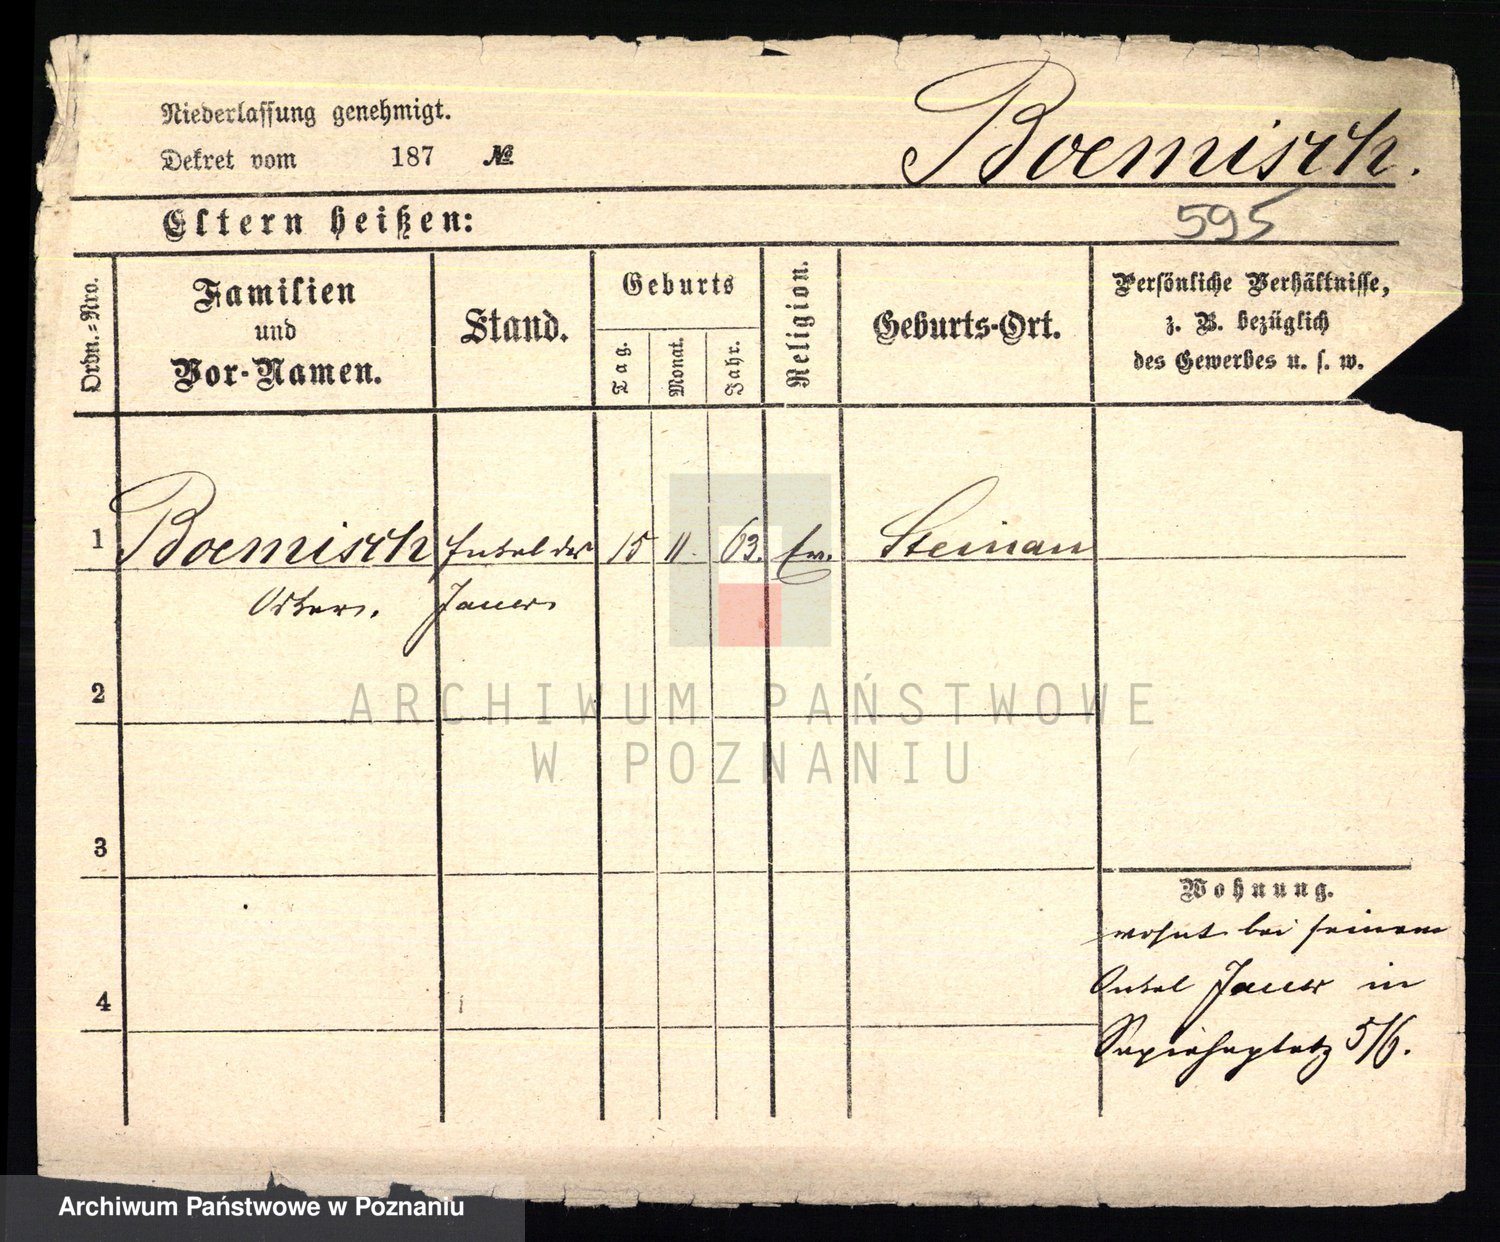 Niederlassung genehmigt.
Dekret vom 187 №
Boemisch.
Eltern heißen:
595
Ordn.-Nro.
Familien
und
Vor-Namen.
Stand.
Geburts
Tag.
Monat.
Jahr.
Religion.
Geburts-Ort.
Persönliche Verhältnisse,
z. B. bezüglich
des Gewerbes u. s. w.
1 Boemisch Enkel des 15 11. 63. Ev. Steinau
Oskar. Jauer
2
3
4
Wohnung.
wohnt bei seinem
Onkel Jauer in
Sapiehaplatz 5/6.
ARCHIWUM PAŃSTWOWE
W POZNANIU
Archiwum Państwowe w Poznaniu